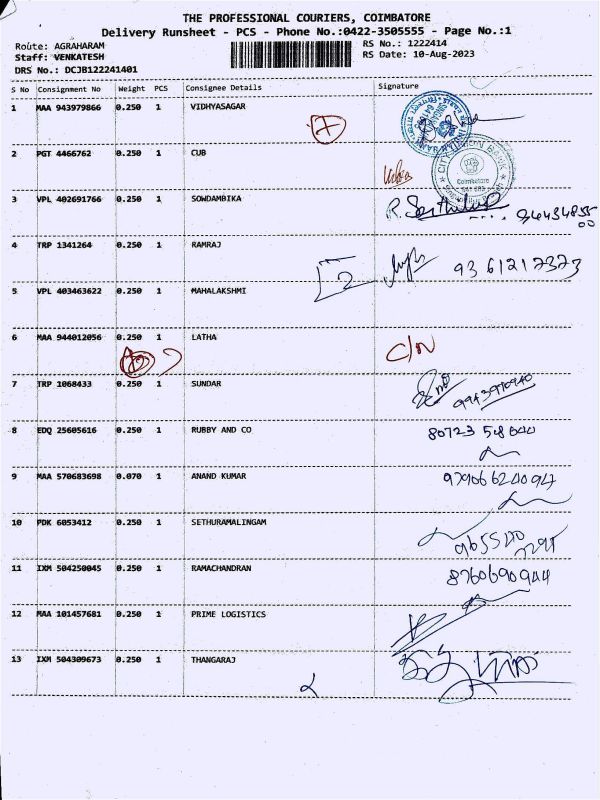 THE PROFESSIONAL COURIERS, COIMBATORE
Delivery Runsheet - PCS - Phone No.:0422-3505555 - Page No.:1
Route: AGRAHARAM
Staff: VENKATESH
DRS No.: DCJB122241401
RS No.: 1222414
RS Date: 10-Aug-2023
S No Consignment No Weight PCS Consignee Details Signature
1 MAA 943979866 0.250 1 VIDHYASAGAR
2 PGT 4466762 0.250 1 CUB
CITY UNION BANK
Coimbatore
3 VPL 402691766 0.250 1 SOWDAMBIKA
4 TRP 1341264 0.250 1 RAMRAJ
2 9361217373
5 VPL 403463622 0.250 1 MAHALAKSHMI
6 MAA 944012056 0.250 1 LATHA C/N
7 TRP 1068433 0.250 1 SUNDAR
9943970940
8 EDQ 25605616 0.250 1 RUBBY AND CO
9 MAA 570683698 0.070 1 ANAND KUMAR
10 PDK 6053412 0.250 1 SETHURAMALINGAM
11 IXM 504250045 0.250 1 RAMACHANDRAN 8760690944
12 MAA 101457681 0.250 1 PRIME LOGISTICS
13 IXM 504309673 0.250 1 THANGARAJ